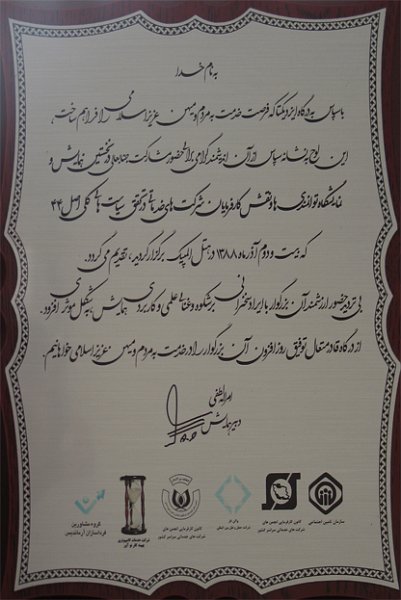 به نام خدا
با سپاس به درگاه ایزد یکتا که فرصت خدمت به مردم و میهن عزیز اسلامی را فراهم ساخت،
این لوح به نشانه سپاس از آن اندیشمند گرامی برای حضور و مشارکت جنابعالی در نخستین همایش و
نمایشگاه توانمندی ها و نقش کارفرمایان شرکت های خدماتی در تحقق سیاست های کلی اصل ۴۴
که بیست و دوم آذر ماه ۱۳۸۸ در هتل المپیک برگزار گردید، تقدیم می گردد.
بی تردید حضور ارزشمند آن بزرگوار با ایراد سخنرانی بر شکوه و غنای علمی و کاربردی همایش به شکل موثری افزود.
از درگاه قادر متعال توفیق روز افزون آن بزرگوار را در خدمت به مردم و میهن عزیز اسلامی خواهانیم.
امراله لطفی
دبیر همایش
سازمان تامین اجتماعی
کانون کارفرمایی انجمن های
شرکت های خدماتی سراسر کشور
کانون کارفرمایی انجمن های
شرکت های خدماتی سراسر کشور
شرکت خدمات کامپیوتری
بیمه کار و آور
گروه مشاورین
فرداسازان آرماندیس